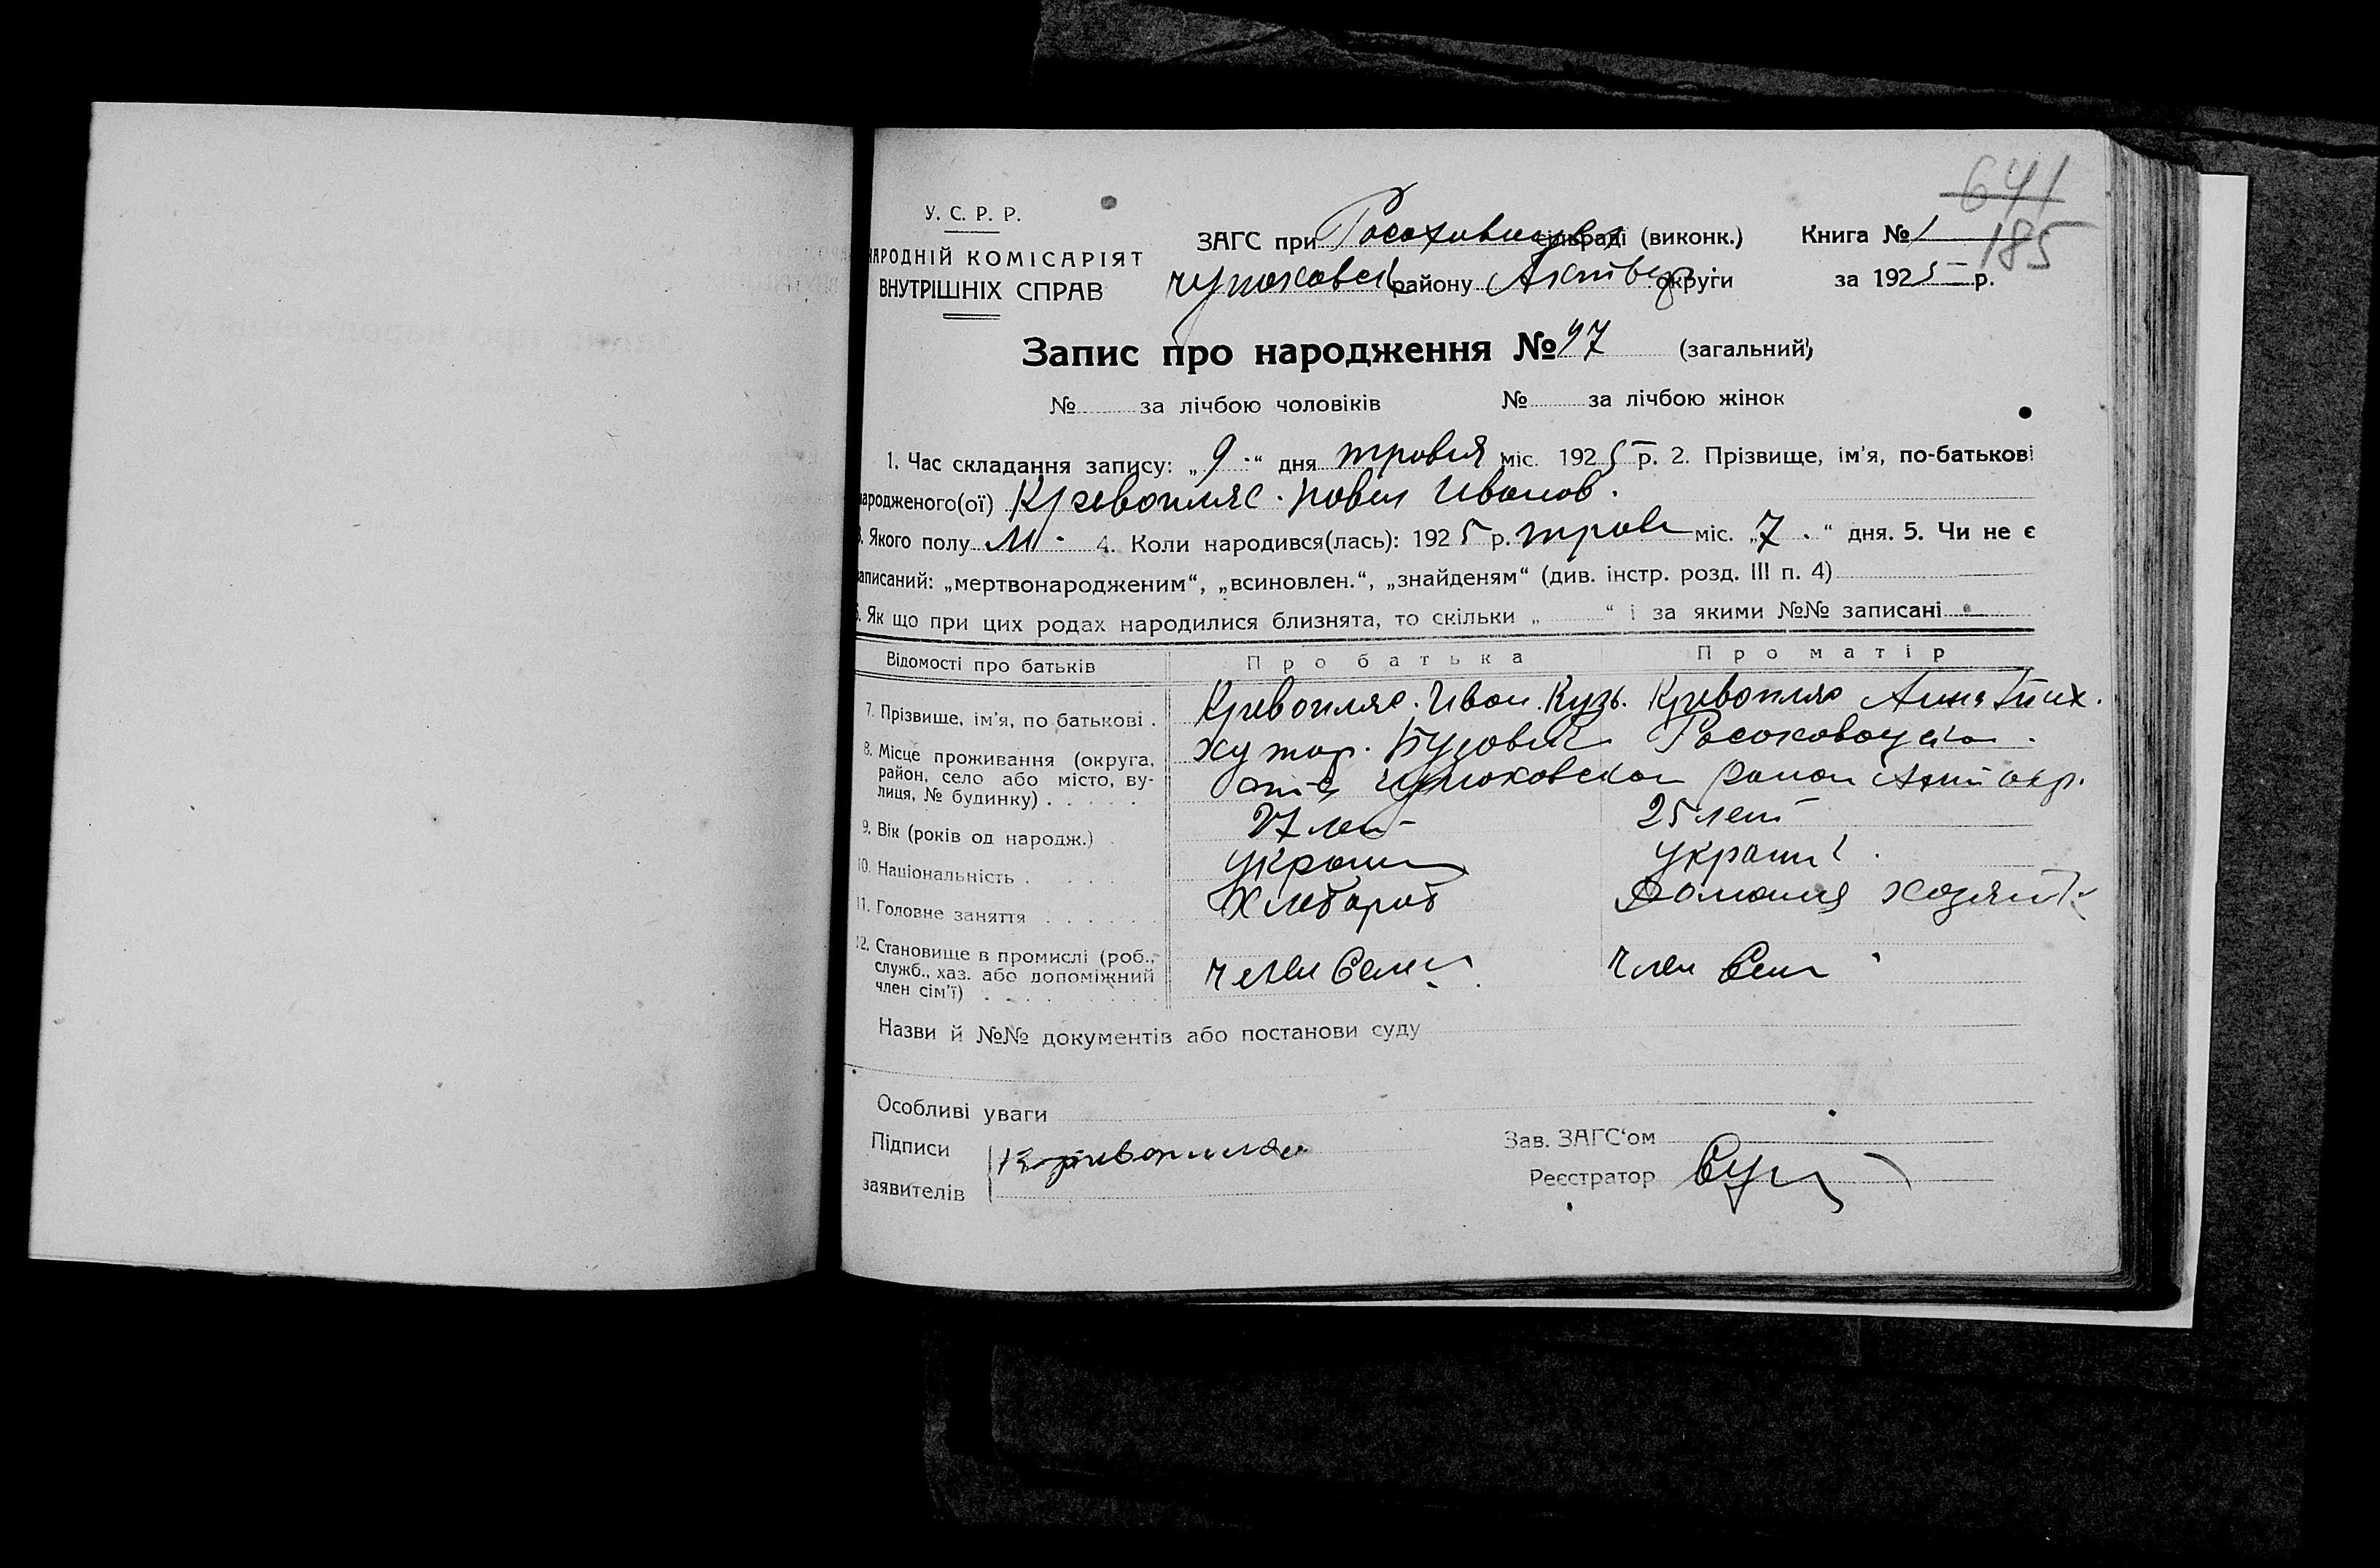 641
185
У. С. Р. Р.
НАРОДНІЙ КОМІСАРІЯТ
ВНУТРІШНІХ СПРАВ
ЗАГС при сільраді (виконк.) Книга № 1
району округи за 1925 р.
Запис про народження № 97 (загальний)
№ за лічбою чоловіків № за лічбою жінок
1. Час складання запису: „9“ дня травня міс. 1925 р. 2. Прізвище, ім’я, по-батькові
народженого(ої) Кревопляс. Иванов.
3. Якого полу М. 4. Коли народився(лась): 1925 р. трав міс. „7.“ дня. 5. Чи не є
записаний: „мертвонародженим“, „всиновлен.“, „знайденям“ (див. інстр. розд. III п. 4)
6. Як що при цих родах народилися близнята, то скільки „ “ і за якими №№ записані
Відомості про батьків Про батька Про матір
7. Прізвище, ім’я, по батькові . Кревопляс. Иван. Кузь. Кревопляс Анна Тих.
8. Місце проживання (округа, район, село або місто, вулиця, № будинку) . . . . . хутор.
9. Вік (років од народж.) . 27 лет 25 лет
10. Національність . . . . . украин украин.
11. Головне заняття . . . . . . Хлебороб Домашня хозяйк
12. Становище в промислі (роб., служб., хаз. або допоміжний член сім’ї) . . . . . . . член семи член семи
Назви й №№ документів або постанови суду
Особливі уваги
Підписи
заявителів
Кривопляс
Зав. ЗАГС‘ом
Реєстратор